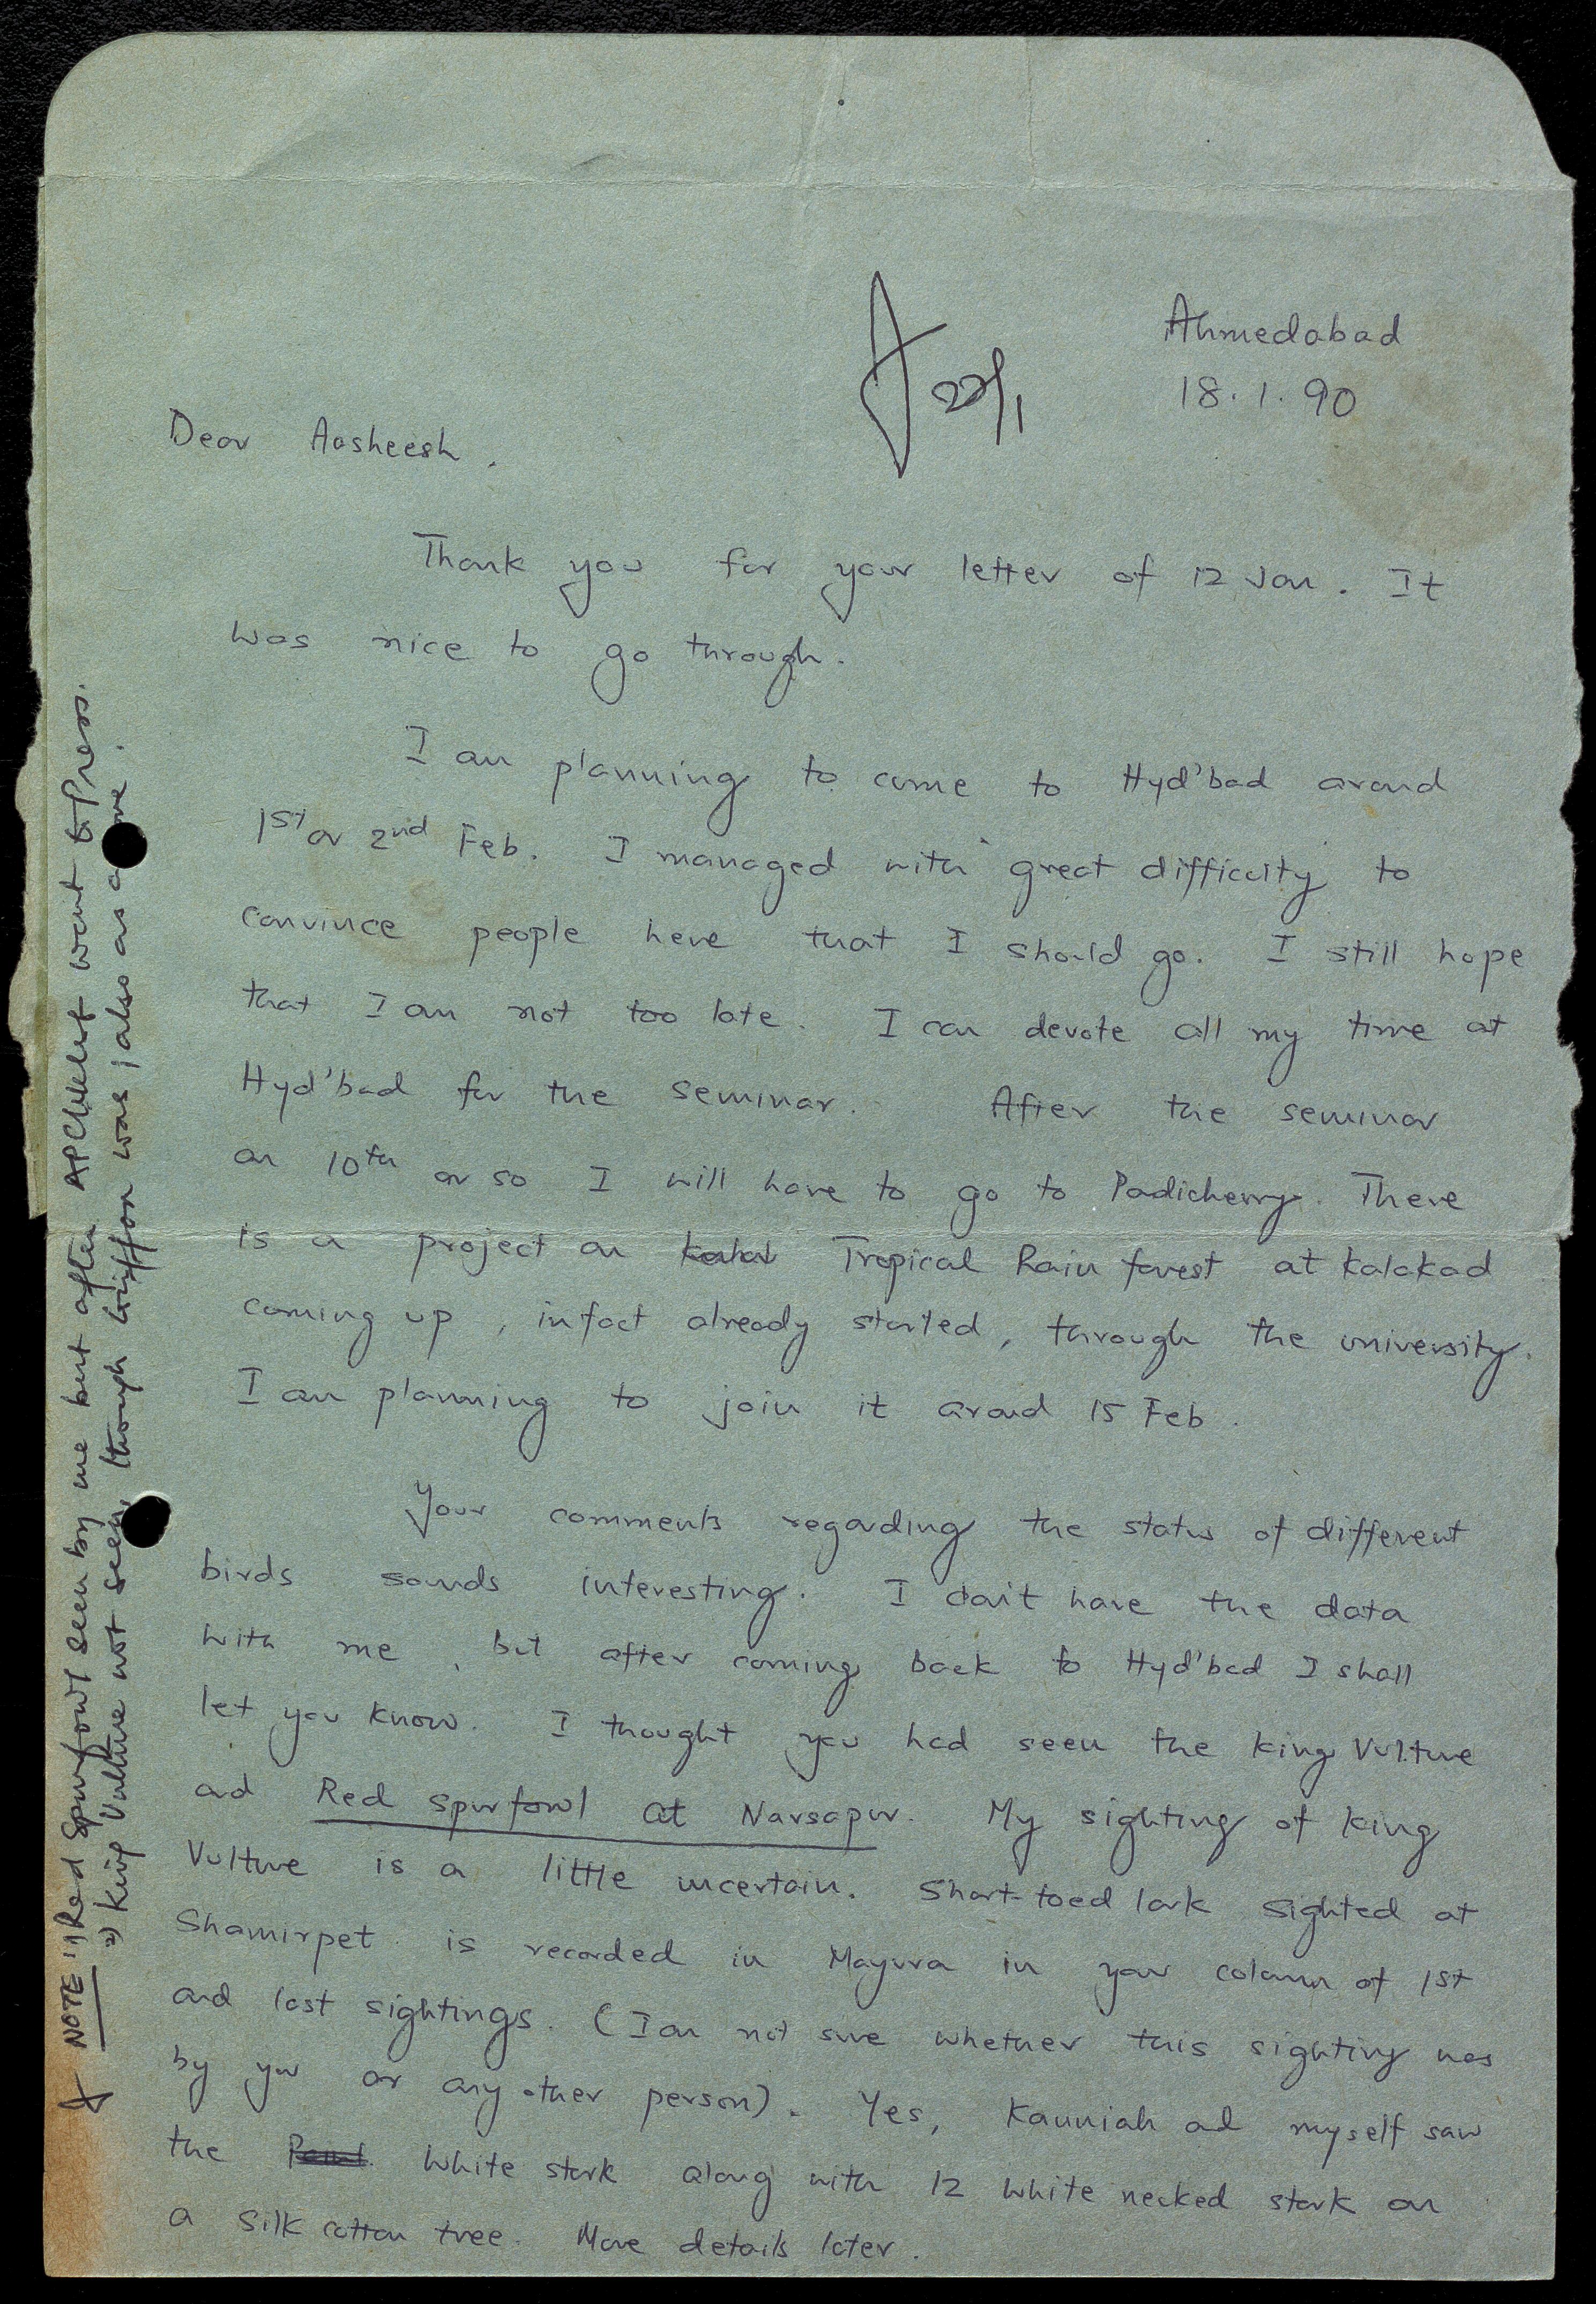 Ahmedabad
22/1
18.1.90
Dear Aasheesh,
Thank you for your letter of 12 Jan. It
was nice to go through.
I am planning to come to Hyd'bad around
1st or 2nd Feb. I managed with great difficulty to
convince people here that I should go. I still hope
that I am not too late. I can devote all my time at
Hyd'bad for the seminar. After the seminar
on 10th or so I will have to go to Podicherry. There
is a project on Tropical Rain forest at Kalakad
coming up, infact already started, through the university.
I am planning to join it around 15 Feb.
Your comments regarding the status of different
birds sounds interesting. I don't have the data
with me, but after coming back to Hyd'bad I shall
let you know. I thought you had seen the King Vulture
and Red spurfowl at Narsapur. My sighting of King
Vulture is a little uncertain. Short-toed lark sighted at
Shamirpet is recorded in Mayura in your column of 1st
and last sightings. (I am not sure whether this sighting was
by you or any other person). Yes, Kanniah and myself saw
the White stork along with 12 White necked stork on
a silk cotton tree. More details later.
NOTE: 1) Red Spurfowl seen by me but after AP Checklist went to Press.
2) King Vulture not seen, though Griffon was, also as above.